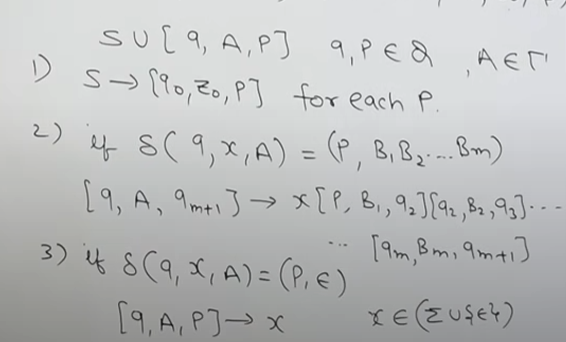 S U [ q, A, P ] q, P ∈ Q , A ∈ Γ
1) S → [q₀, z₀, P] for each P.
2) if δ( q, x, A) = (P, B₁ B₂ .... Bm)
[ q, A, qm+1 ] → x [ P, B₁, q₂][q₂, B₂, q₃] ....
... [qm, Bm, qm+1]
3) if δ(q, x, A) = (P, ∈)
[q, A, P] → x x ∈ (Σ ∪ {∈})